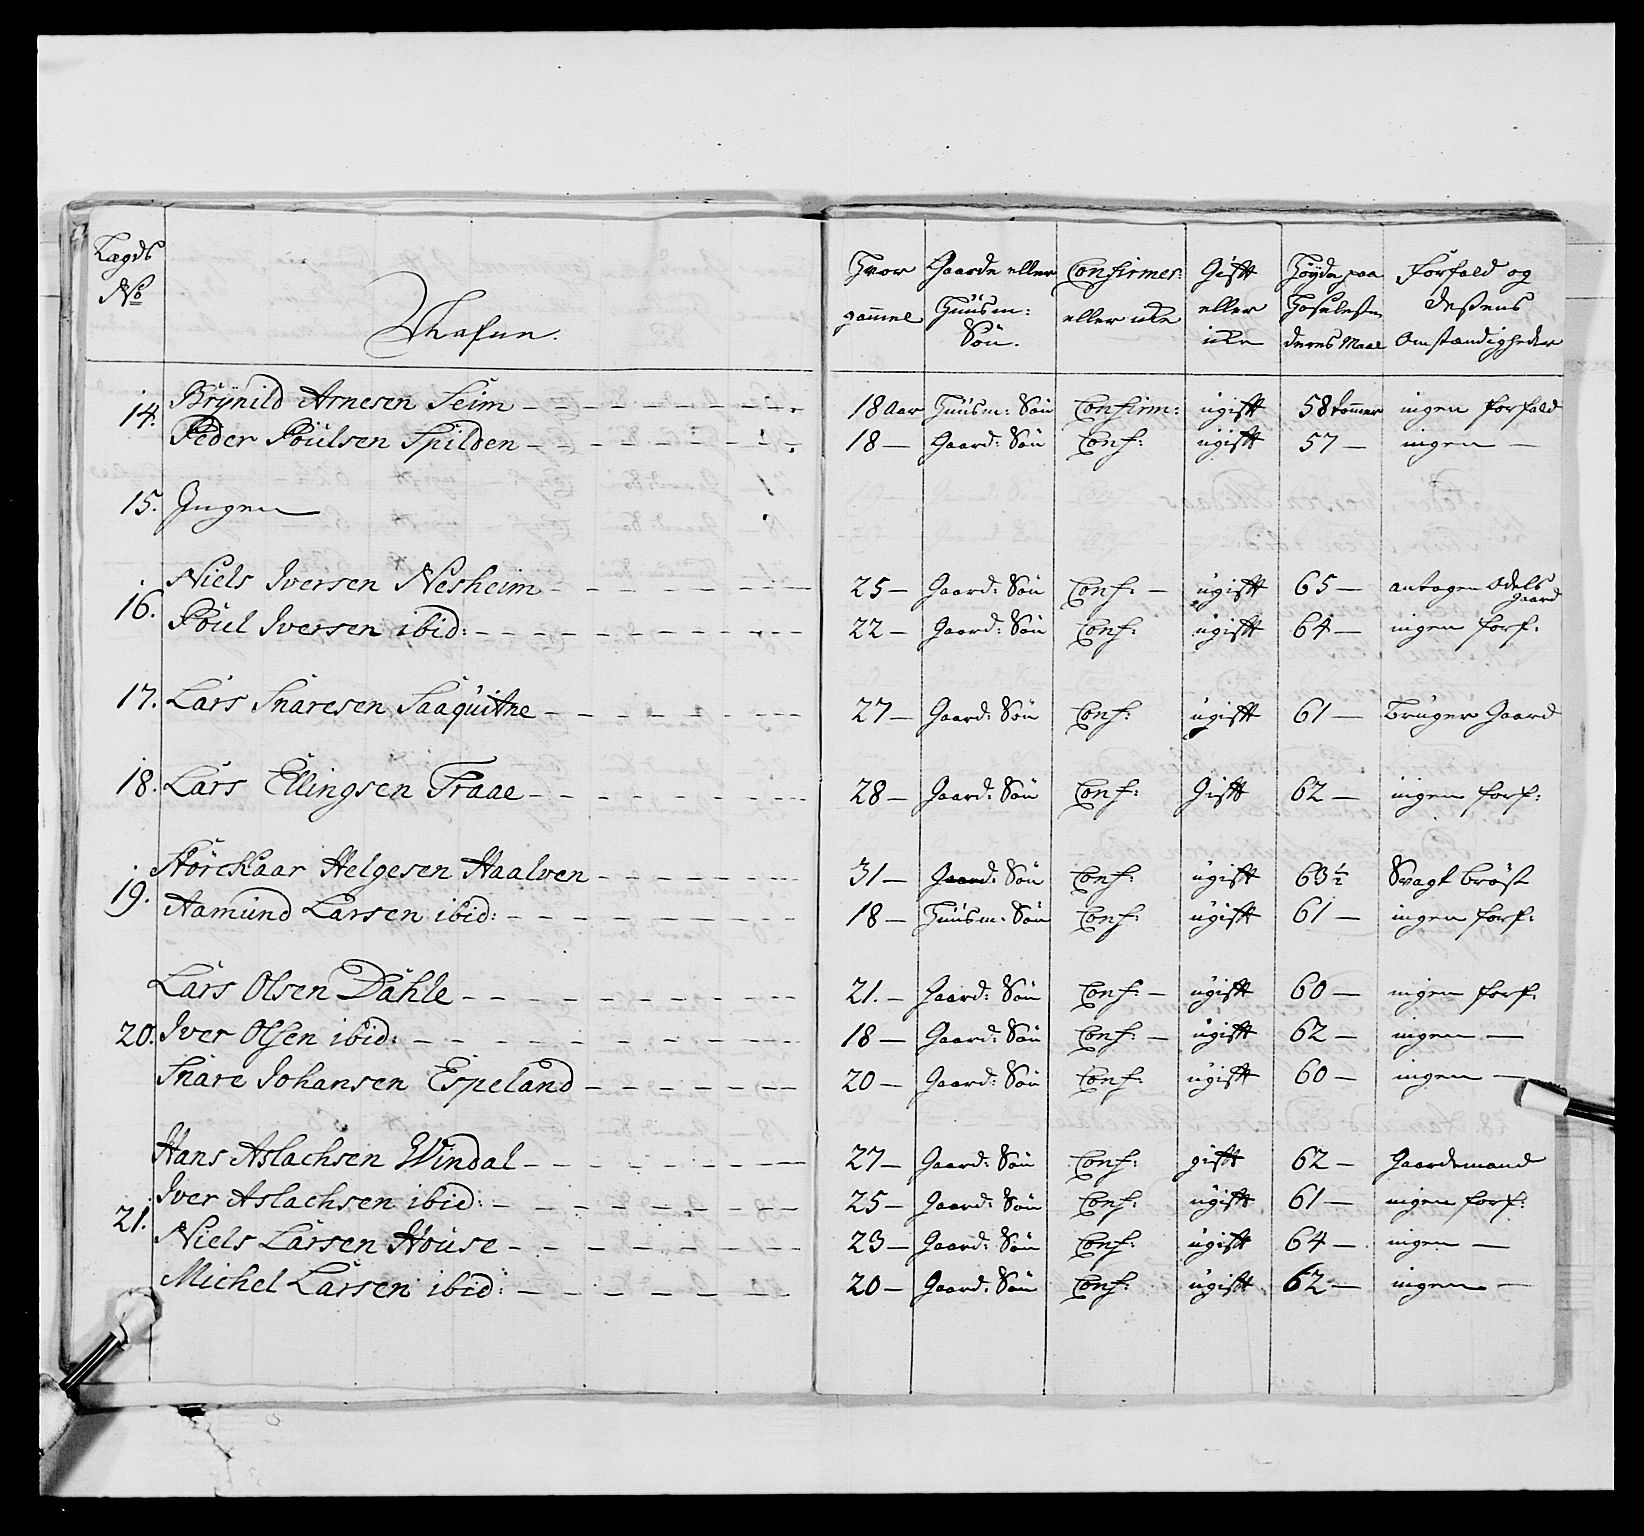 Lægds No | Nafne. | Hvor gammel | Gaarde eller Huusm: Søn. | Confirmer: eller icke | Gift eller icke | Høyde paa Hoseleste deres Maal | Forfald og deßens Omstændigheder
14. Brÿnild Arnesen Seim | 18 Aar | Huusm: Søn | Confirm: | ugift | 58 tommer | ingen forfald
Peder Poulsen Spilden | 18 — | Gaard: Søn | Conf: | ugift | 57 — | ingen —
15. Ingen
16. Niels Iversen Nesheim | 25 — | Gaard: Søn | Conf: — | ugift | 65 — | antagen Odels gaard
Poul Iversen ibid: | 22 — | Gaard: Søn | Conf: | ugift | 64 — | ingen forf:
17. Lars Snaresen Saaquitne | 27 — | Gaard: Søn | Conf: | ugift | 61 — | bruger Gaard
18. Lars Ellingsen Traae | 28 — | Gaard: Søn | Conf: | Gift | 62 — | ingen forf:
19. Störckaar Helgesen Haalven | 31 — | Gaard: Søn | Conf: | ugift | 63½ | Svagt bröst
Aamund Larsen ibid: | 18 — | Huusm: Søn | Conf: | ugift | 61 — | ingen forf:
Lars Olsen Dahle | 21. — | Gaard: Søn | Conf: — | ugift | 60 — | ingen forf:
20. Iver Olsen ibid: | 18 — | Gaard: Søn | Conf: — | ugift | 62 — | ingen —
Snare Johansen Espeland | 20 — | Gaard: Søn | Conf: | ugift | 60 — | ingen —
Hans Aslachsen Windal | 27 — | Gaard: Søn | Conf: | gift | 62 — | Gaardemand
21. Iver Aslachsen ibid: | 25 — | Gaard: Søn | Conf: | ugift | 61 — | ingen forf:
Niels Larsen House | 23 — | Gaard: Søn | Conf: | ugift | 64 — | ingen —
Michel Larsen ibid: | 20 — | Gaard: Søn | Conf: | ugift | 62 — | ingen —